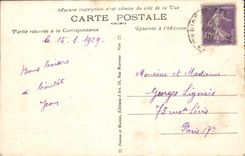 Aucune inscription n'est admise du côté de la Vue
CARTE POSTALE
Partie réservée à la Correspondance
Réservée à l'Adresse
le 15.1.1929.
Bons baisers
à bientôt
Jean
Monsieur et Madame
Georges Lignais
73 rue
Paris 17e